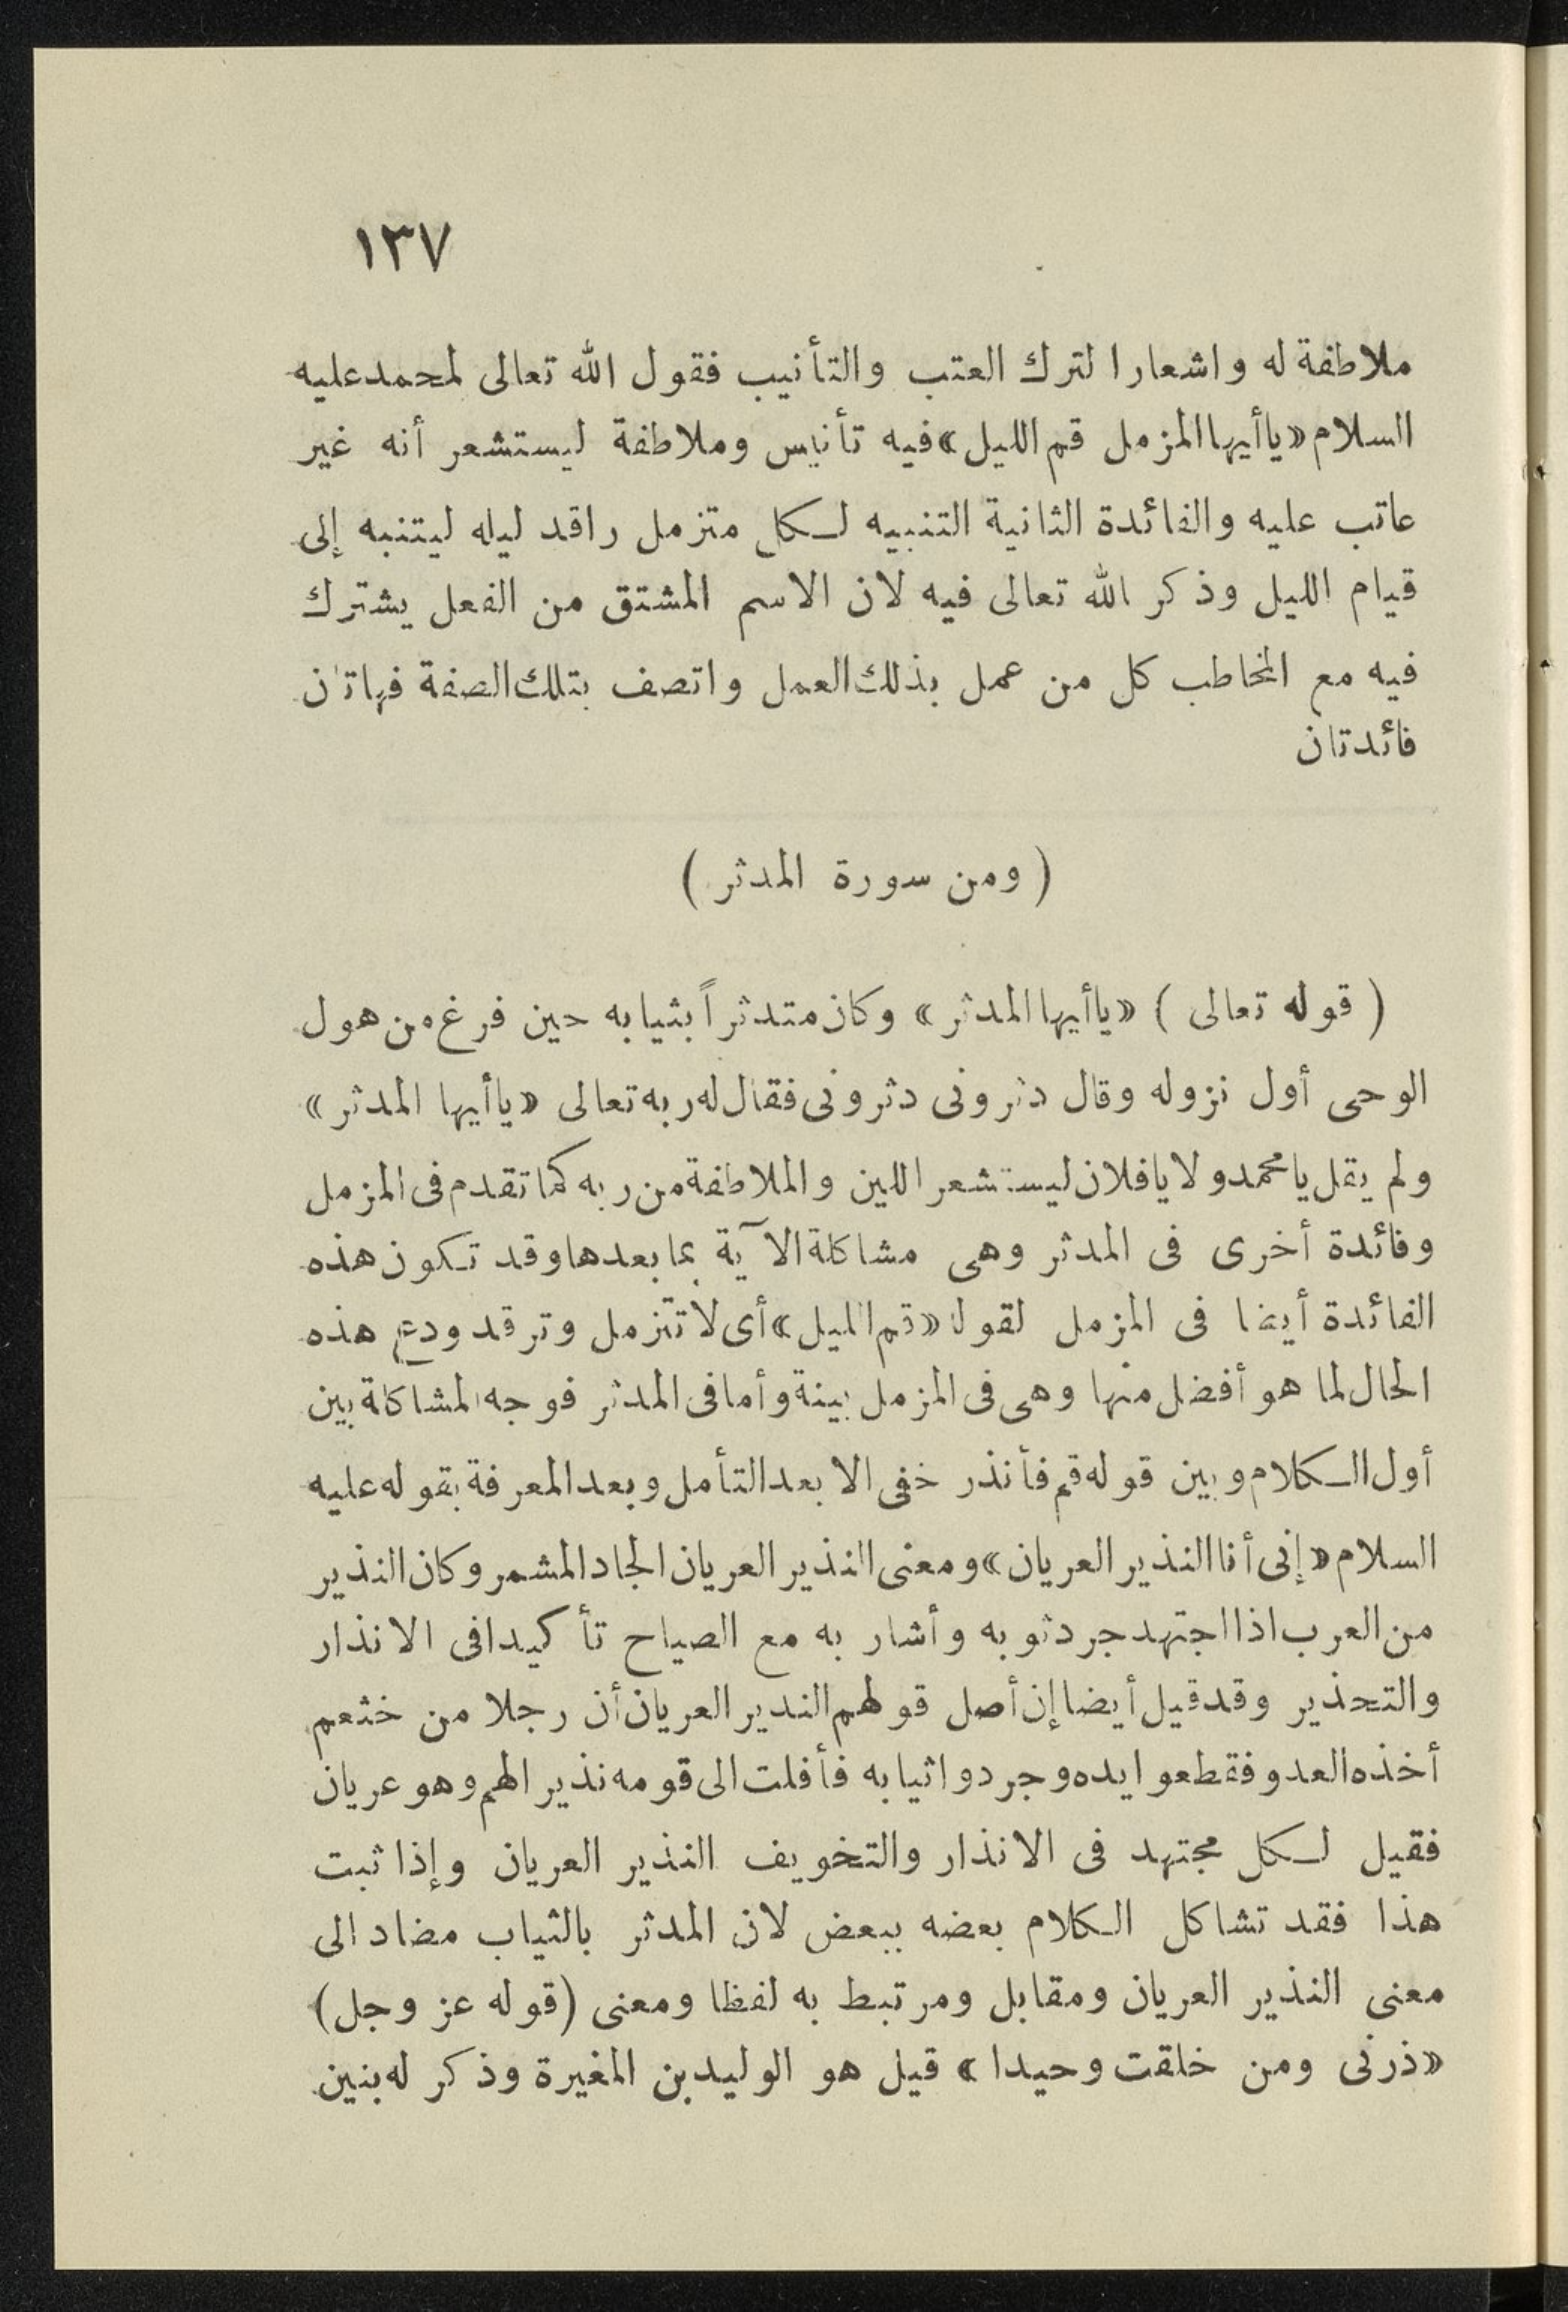 ١٣٧
ملاطفة له واشعارا لترك العتب والتأنيب فقول الله تعالى لمحمد عليه
السلام «ياأيها المزمل قم الليل» فيه تأنيس وملاطفة ليستشعر أنه غير
عاتب عليه والفائدة الثانية التنبيه لـكل متزمل راقد ليله ليتنبه إلى
قيام الليل وذكر الله تعالى فيه لان الاسم المشتق من الفعل يشترك
فيه مع المخاطب كل من عمل بذلك العمل واتصف بتلك الصفة فهاتان
فائدتان
( ومن سورة المدثر )
( قوله تعالى ) «ياأيها المدثر» وكان متدثراً بثيابه حين فرغ من هول
الوحى أول نزوله وقال دثرونى دثرونى فقال له ربه تعالى «ياأيها المدثر»
ولم يقل يا محمد ولا يافلان ليستشعر اللين والملاطفة من ربه كما تقدم فى المزمل
وفائدة أخرى فى المدثر وهى مشاكلة الآية بما بعدها وقد تـكون هذه
الفائدة أيضا فى المزمل لقوله «قم الليل» أى لا تتزمل وترقد ودع هذه
الحال لما هو أفضل منها وهى فى المزمل بينة وأما فى المدثر فوجه المشاكلة بين
أول الـكلام وبين قوله قم فأنذر خفى الا بعد التأمل وبعد المعرفة بقوله عليه
السلام «إنى أنا النذير العريان» ومعنى النذير العريان الجاد المشمر وكان النذير
من العرب اذا اجتهد جرد ثوبه وأشار به مع الصياح تأكيدا فى الانذار
والتحذير وقد قيل أيضا إن أصل قولهم الندير العريان أن رجلا من خثعم
أخذه العدو فقطعوا يده وجردوا ثيابه فأفلت الى قومه نذيرا لهم وهو عريان
فقيل لـكل مجتهد فى الانذار والتخويف النذير العريان وإذا ثبت
هذا فقد تشاكل الـكلام بعضه ببعض لان المدثر بالثياب مضاد الى
معنى النذير العريان ومقابل ومرتبط به لفظا ومعنى (قوله عز وجل)
«ذرنى ومن خلقت وحيدا» قيل هو الوليد بن المغيرة وذكر له بنين